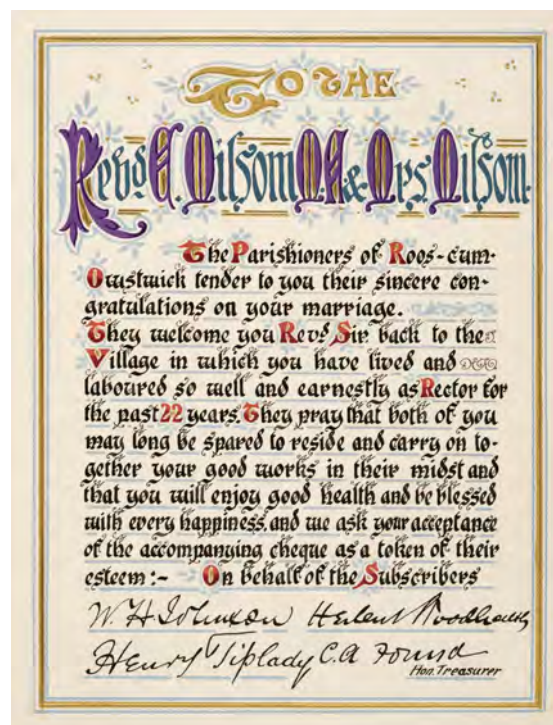 To the
Revd. E. Milsom M.A. & Mrs. Milsom.
The Parishioners of Roos-cum-
Owstwick tender to you their sincere con-
gratulations on your marriage.
They welcome you Revd. Sir back to the
Village in which you have lived and
laboured so well and earnestly as Rector for
the past 22 years. They pray that both of you
may long be spared to reside and carry on to-
gether your good works in their midst and
that you will enjoy good health and be blessed
with every happiness, and we ask your acceptance
of the accompanying cheque as a token of their
esteem :- On behalf of the Subscribers
W. H. Johnson Herbert
Henry Tiplady C. A. Found
Hon. Treasurer